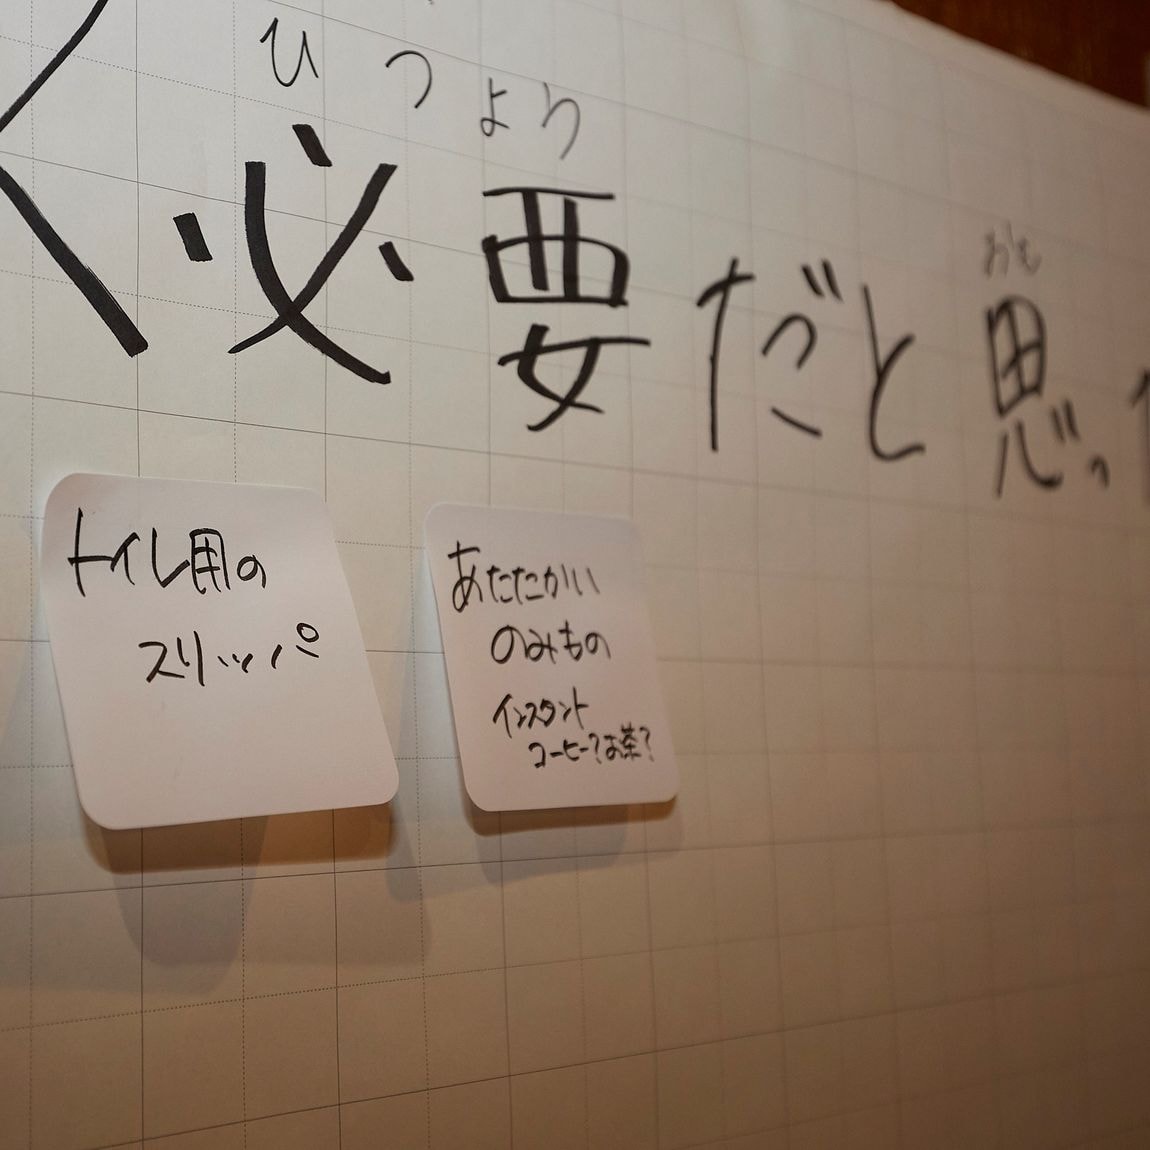 ひつよう おも
く必要だと思っ
トイレ用の
スリッパ
あたたかい
のみもの
インスタント
コーヒー？お茶？